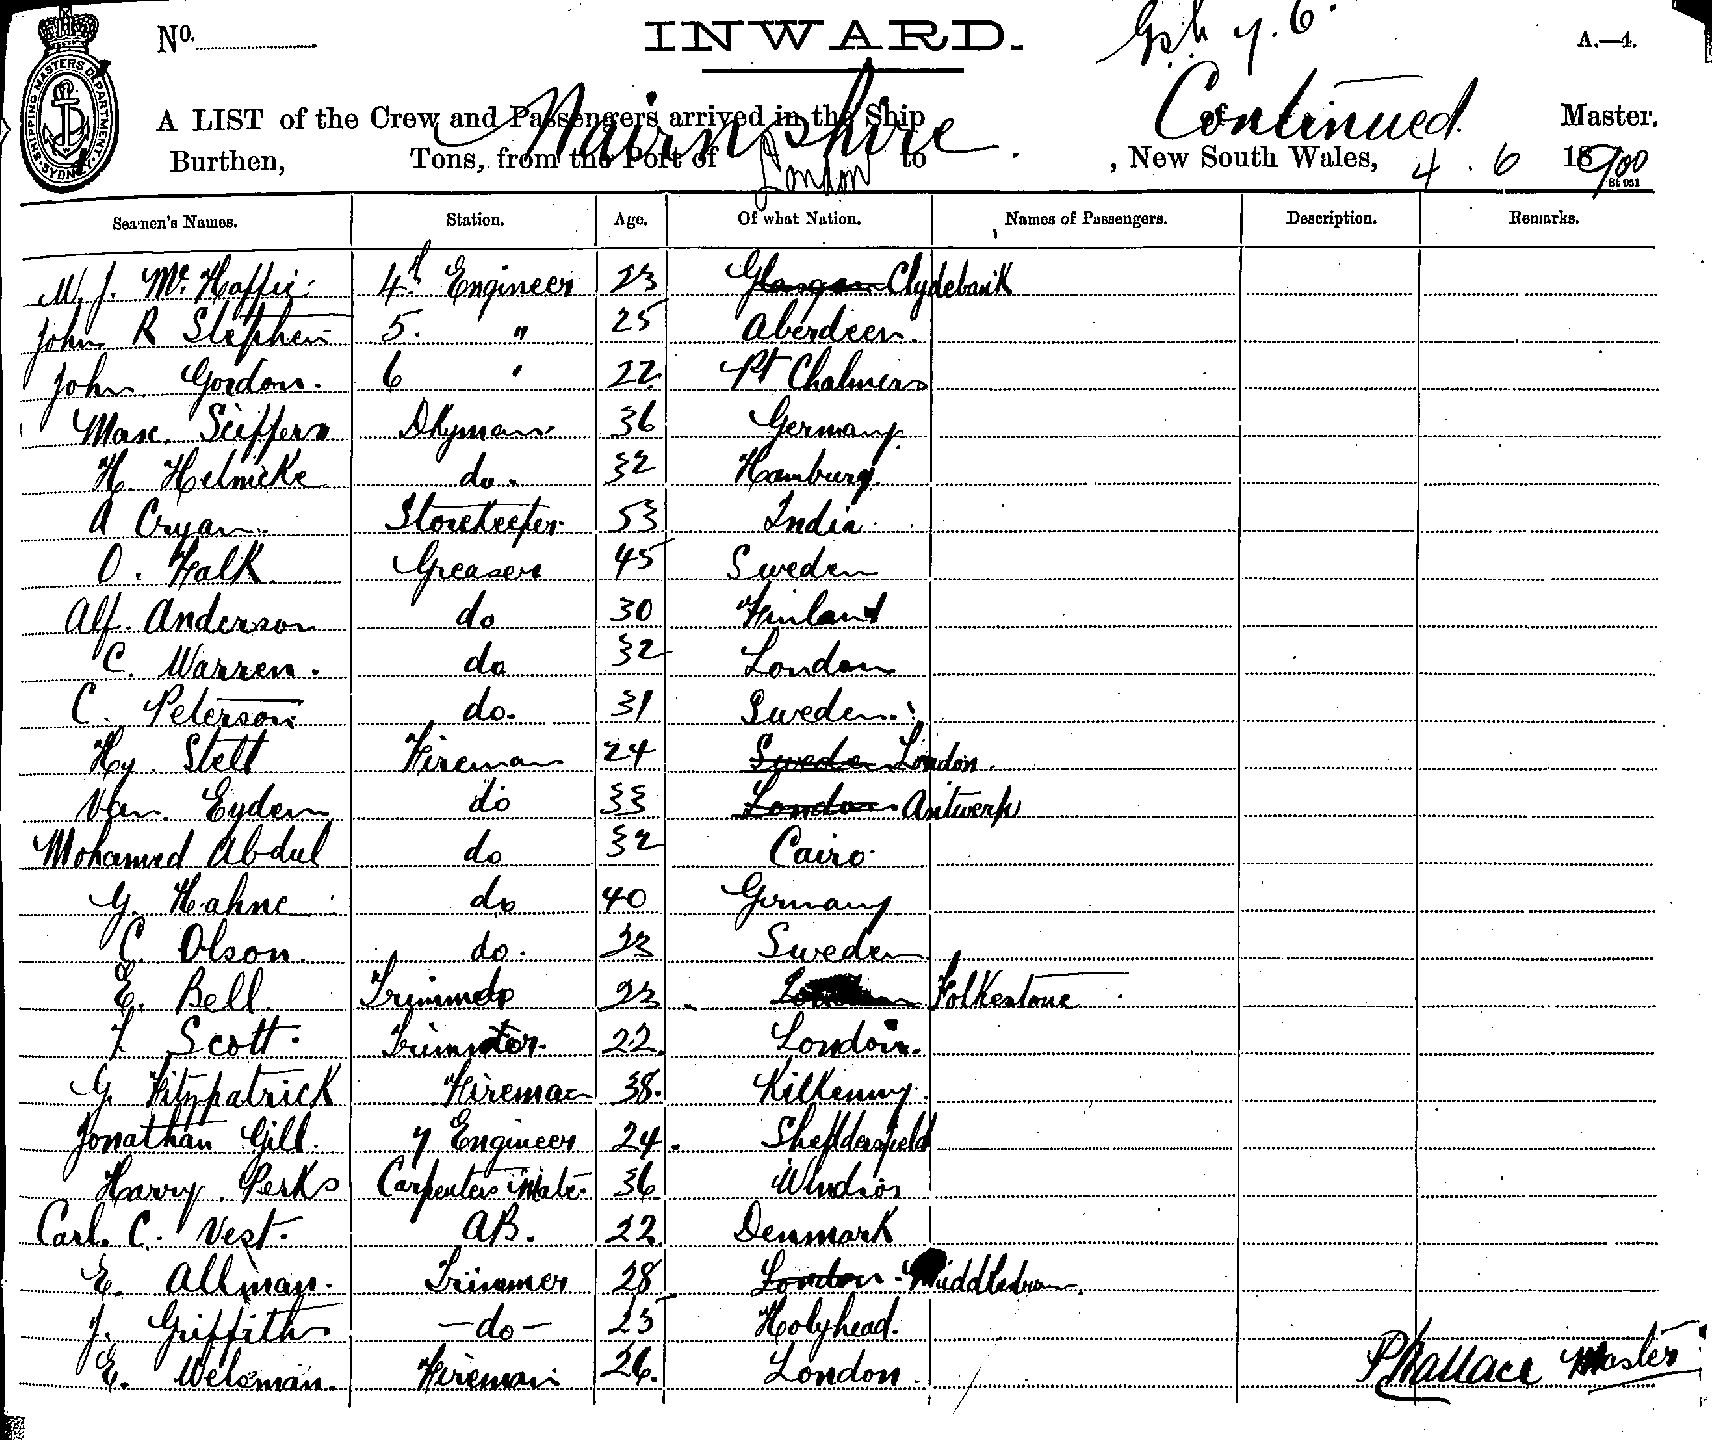 No. INWARD. A.—4.
SHIPPING MASTERS DEPARTMENT SYDNEY
A LIST of the Crew and Passengers arrived in the Ship Nairnshire Continued. Master.
Burthen, Tons, from the Port of London to , New South Wales, 4.6 1900
Seamen's Names. Station. Age. Of what Nation. Names of Passengers. Description. Remarks.
4th Engineer 23 Glasgow Clydebank
John R Stephen 5. " 25 Aberdeen.
John Gordon. 6 " 22 Pt Chalmers
36 Germany
H. Helmcke do. 32 Hamburg
A Cryan Storekeeper 53 India
O. Falk Greaser 45 Sweden
Alf. Anderson do 30 Finland
C. Warren. do 32 London
C. Peterson do. 31 Sweden.
Hy. Stelt Fireman 24 Sweden London.
Van Eyden do 33 London Antwerp
Mohamed Abdul do 32 Cairo
G. Hahne do 40 Germany
C. Olson do. 33 Sweden
E. Bell 23 London Folkestone
Scott. Trimmer. 22. London.
G. Fitzpatrick Fireman 38. Kilkenny.
Jonathan Gill. 7 Engineer 24.
Harry Perks Carpenters Mate. 36 Windsor
Carl. C. Vest. AB. 22 Denmark
E. Allman. Trimmer 28 London - Middlesbro
J. Griffiths —do— 25 Holyhead.
E. Welsman. Fireman 26. London
Wallace Master